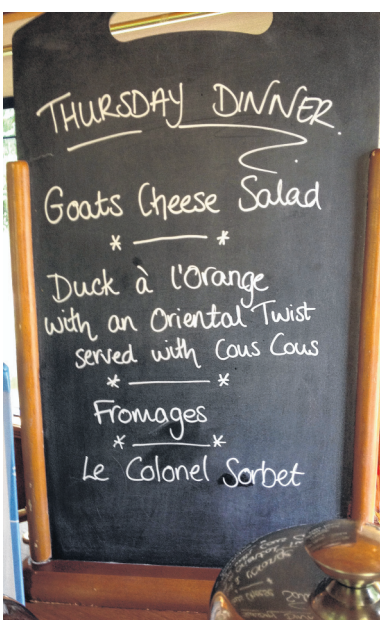 THURSDAY DINNER.
Goats Cheese Salad
* — *
Duck à l'Orange
with an Oriental Twist
served with Cous Cous
* — *
Fromages
* — *
Le Colonel Sorbet